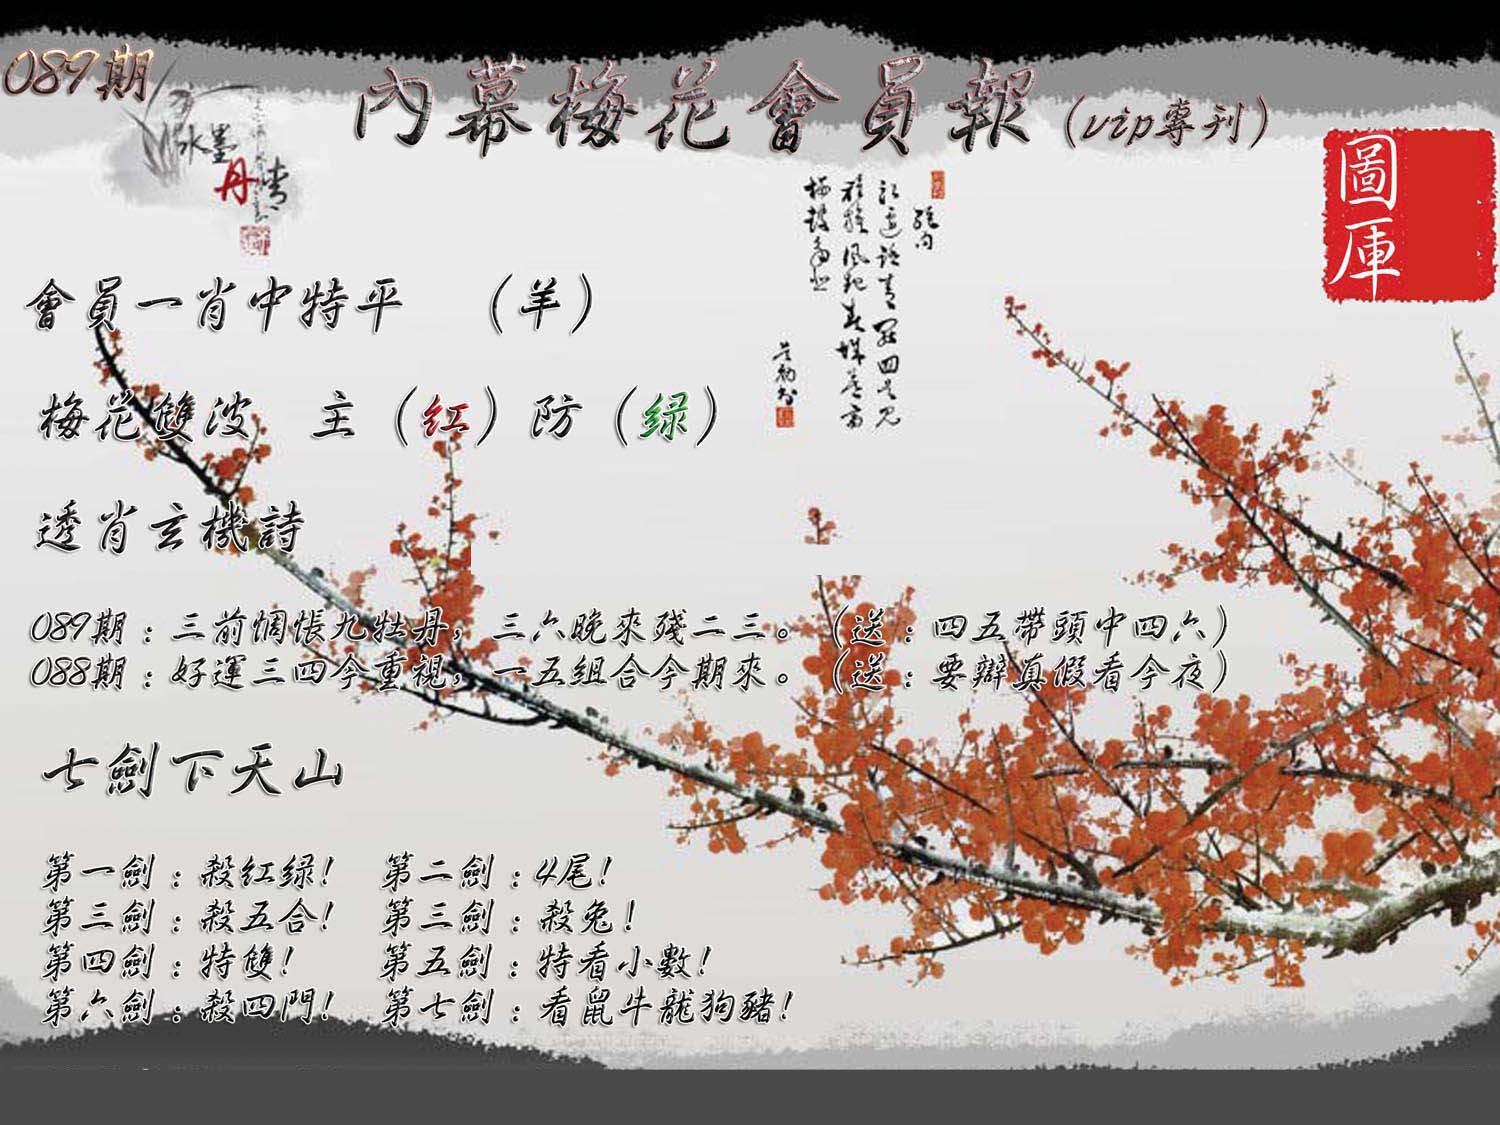 089期
內幕梅花會員報（vip專刊）
水墨
丹青
圖庫
會員一肖中特平 （羊）
梅花雙波 主（红）防（绿）
透肖玄機詩
089期：三前惆悵九牡丹，三六晚來殘二三。（送：四五帶頭中四六）
088期：好運三四今重視，一五組合今期來。（送：要辯真假看今夜）
七劍下天山
第一劍：殺红绿! 第二劍：4尾!
第三劍：殺五合! 第三劍：殺兔!
第四劍：特雙! 第五劍：特看小數!
第六劍：殺四門! 第七劍：看鼠牛龍狗豬!